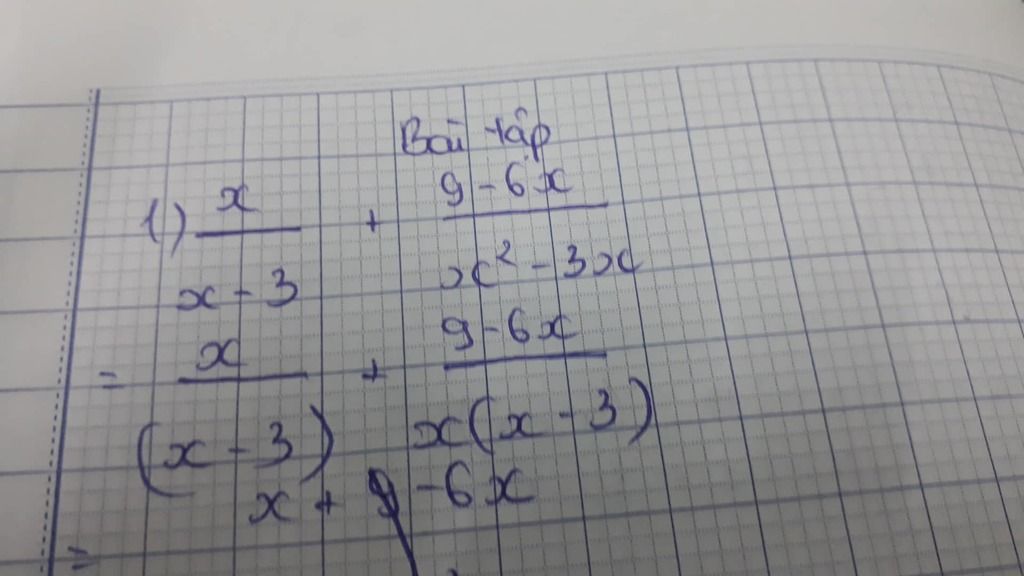 Bài tập
1) x/(x - 3) + (9 - 6x)/(x² - 3x)
= x/((x - 3)) + (9 - 6x)/(x(x - 3))
= x + 9 - 6x